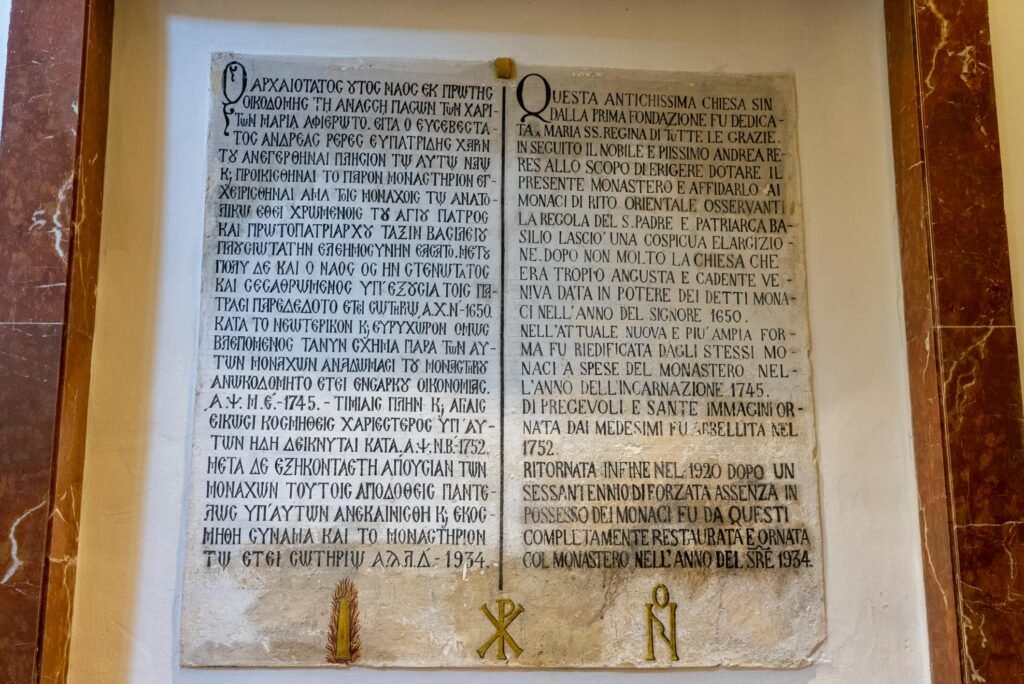 Ο ΑΡΧΑΙΟΤΑΤΟΣ ȣΤΟΣ ΝΑΟΣ ΕΚ ΠΡΩΤΗΣ
ΟΙΚΟΔΟΜΗΣ ΤΗ ΑΝΑΣΣΗ ΠΑΣΩΝ ΤΩΝ ΧΑΡΙ-
ΤΩΝ ΜΑΡΙΑ ΑΦΙΕΡΩΤΟ. ΕΙΤΑ Ο ΕΥΣΕΒΕΣΤΑ-
ΤΟΣ ΑΝΔΡΕΑΣ ΡΕΡΕΣ ΕΥΠΑΤΡΙΔΗΣ ΧΑΡΙΝ
Τȣ ΑΝΕΓΕΡΘΗΝΑΙ ΠΛΗΣΙΟΝ ΤΩ ΑΥΤΩ ΝΑΩ
Κ; ΠΡΟΙΚΙΣΘΗΝΑΙ ΤΟ ΠΑΡΟΝ ΜΟΝΑΣΤΗΡΙΟΝ ΕΓ-
ΧΕΙΡΙΣΘΗΝΑΙ ΑΜΑ ΤΟΙΣ ΜΟΝΑΧΟΙΣ ΤΩ ΑΝΑΤΟ-
ΛΙΚΩ ΕΘΕΙ ΧΡΩΜΕΝΟΙΣ Τȣ ΑΓΙȣ ΠΑΤΡΟΣ
ΚΑΙ ΠΡΩΤΟΠΑΤΡΙΑΡΧȣ ΤΑΞΙΝ ΒΑΣΙΛΕΙȣ
ΠΛȣΣΙΩΤΑΤΗΝ ΕΛΕΗΜΟΣΥΝΗΝ ΕΑΣΑΤΟ. ΜΕΤ Ȣ
ΠΟΛΥ ΔΕ ΚΑΙ Ο ΝΑΟΣ ΟΣ ΗΝ ΣΤΕΝΩΤΑΤΟΣ
ΚΑΙ ΣΕΣΑΘΡΩΜΕΝΟΣ ΥΠ' ΕΞȣΣΙΑ ΤΟΙΣ ΠΑ-
ΤΡΑΣΙ ΠΑΡΕΔΕΔΟΤΟ ΕΤΕΙ ΣΩΤΗΡΙΩ, Α.Χ.Ν-1650.
ΚΑΤΑ ΤΟ ΝΕΩΤΕΡΙΚΟΝ Κ; ΕΥΡΥΧΩΡΟΝ ΟΜΩΣ
ΒΛΕΠΟΜΕΝΟΣ ΤΑΝΥΝ ΣΧΗΜΑ ΠΑΡΑ ΤΩΝ ΑΥ-
ΤΩΝ ΜΟΝΑΧΩΝ ΑΝΑΛΩΜΑΣΙ Τȣ ΜΟΝΑΣΤΗΡΙȣ
ΑΝΩΚΟΔΟΜΗΤΟ ΕΤΕΙ ΕΝΣΑΡΚȣ ΟΙΚΟΝΟΜΙΑΣ.
͵Α.Ψ.Μ.Ε.-1745. - ΤΙΜΙΑΙΣ ΠΛΗΝ Κ; ΑΓΙΑΙΣ
ΕΙΚΩΣΙ ΚΟΣΜΗΘΕΙΣ ΧΑΡΙΕΣΤΕΡΟΣ ΥΠ' ΑΥ-
ΤΩΝ ΗΔΗ ΔΕΙΚΝΥΤΑΙ ΚΑΤΑ ͵Α.Ψ.Ν.Β-1752.
ΜΕΤΑ ΔΕ ΕΞΗΚΟΝΤΑΕΤΗ ΑΠȣΣΙΑΝ ΤΩΝ
ΜΟΝΑΧΩΝ ΤΟΥΤΟΙΣ ΑΠΟΔΟΘΕΙΣ ΠΑΝΤΕ-
ΛΩΣ ΥΠ' ΑΥΤΩΝ ΑΝΕΚΑΙΝΙΣΘΗ Κ; ΕΚΟΣ-
ΜΗΘΗ ΣΥΝΑΜΑ ΚΑΙ ΤΟ ΜΟΝΑΣΤΗΡΙΟΝ
ΤΩ ΕΤΕΙ ΣΩΤΗΡΙΩ Α.Ϡ.Λ.Δ.- 1934.
QUESTA ANTICHISSIMA CHIESA SIN
DALLA PRIMA FONDAZIONE FU DEDICA-
TA A MARIA SS. REGINA DI TUTTE LE GRAZIE.
IN SEGUITO IL NOBILE E PIISSIMO ANDREA RE-
RES ALLO SCOPO DI ERIGERE DOTARE IL
PRESENTE MONASTERO E AFFIDARLO AI
MONACI DI RITO ORIENTALE OSSERVANTI
LA REGOLA DEL S. PADRE E PATRIARCA BA-
SILIO LASCIO' UNA COSPICUA ELARGIZIO-
NE. DOPO NON MOLTO LA CHIESA CHE
ERA TROPPO ANGUSTA E CADENTE VE-
NIVA DATA IN POTERE DEI DETTI MONA-
CI NELL'ANNO DEL SIGNORE 1650.
NELL'ATTUALE NUOVA E PIU' AMPIA FOR-
MA FU RIEDIFICATA DAGLI STESSI MO-
NACI A SPESE DEL MONASTERO NEL-
L'ANNO DELL'INCARNAZIONE 1745.
DI PREGEVOLI E SANTE IMMAGINI OR-
NATA DAI MEDESIMI FU ABBELLITA NEL
1752.
RITORNATA INFINE NEL 1920 DOPO UN
SESSANTENNIO DI FORZATA ASSENZA IN
POSSESSO DEI MONACI FU DA QUESTI
COMPLETAMENTE RESTAURATA E ORNATA
COL MONASTERO NELL'ANNO DEL SRE 1934.